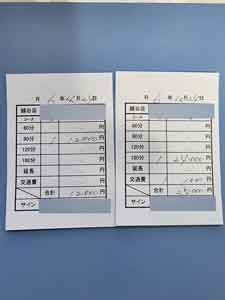 年 月 日
越谷店
コース
60分 円
90分 1 12,000 円
120分 円
180分 円
延長 円
交通費 円
合計 12,000 円
サイン
年 月 日
越谷店
コース
60分 円
90分 円
120分 円
180分 1 24,000 円
延長 円
交通費 円
合計 25,000 円
サイン